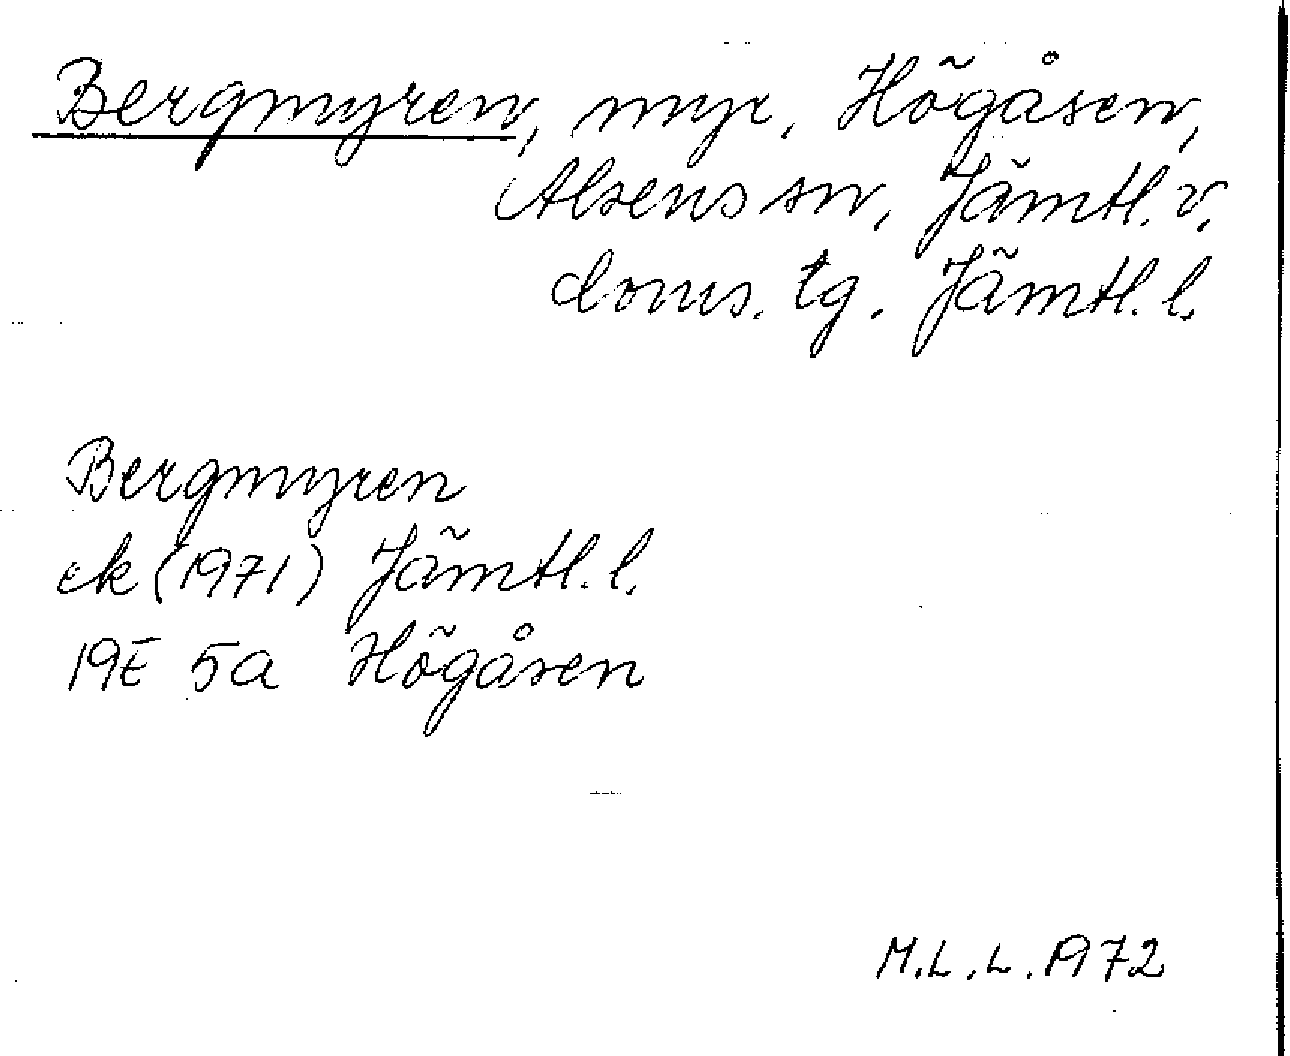 Bergmyren, myr, Högåsen,
Alsens sn, Jämtl. v.
doms. tg. Jämtl. l.
Bergmyren
ek (1971) Jämtl. l.
19E 5a Högåsen
M.L.L. 1972